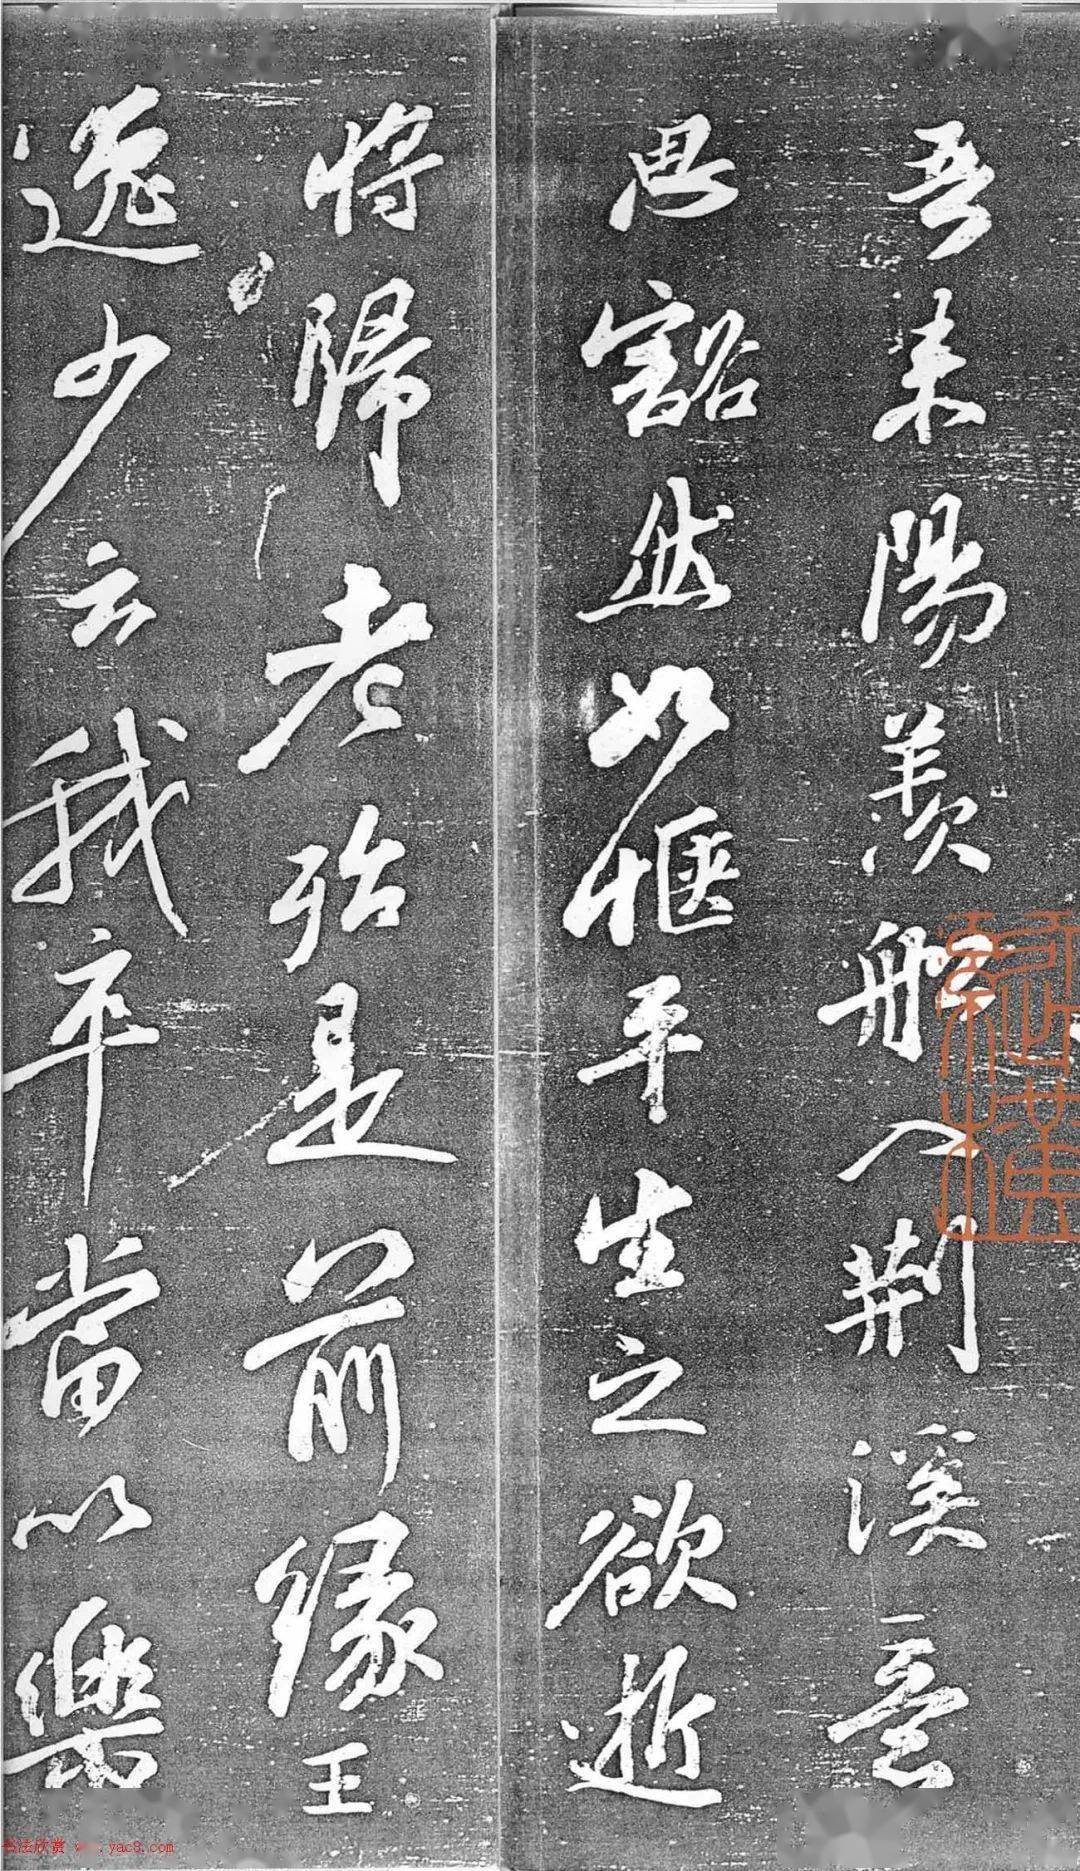 吾来陽羡船入荆溪意
思豁然如惬平生之欲逝
将歸老殆是前緣王
逸少云我卒當以樂
书法欣赏 www.yac8.com